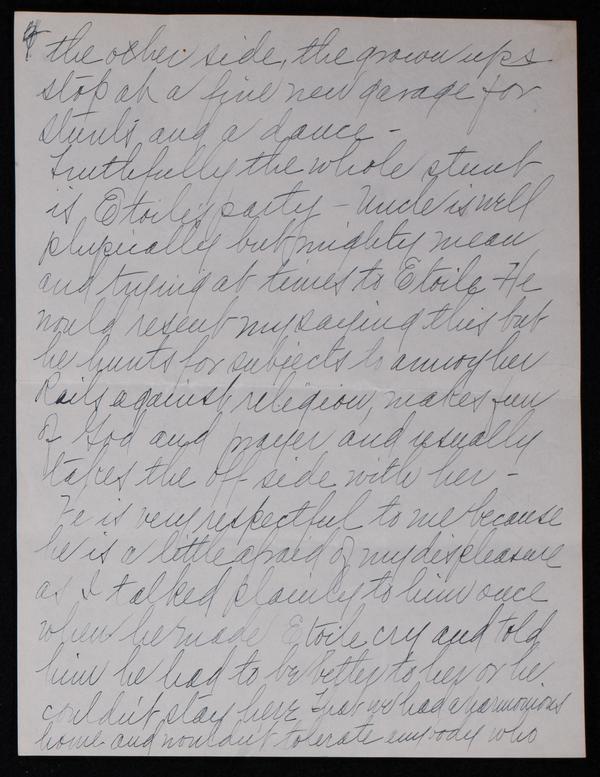 the other side, the grown ups
stop at a fine new garage for
stunts and a dance -
Truthfully the whole stunt
is Etoile's party - Uncle is well
physically but mighty mean
and trying at times to Etoile He
would resent my saying this but
he hunts for subjects to annoy her
Rails against religion, makes fun
of God and prayer and usually
takes the off side with her -
He is very respectful to me because
he is a little afraid of my displeasure
as I talked plainly to him once
when he made Etoile cry and told
him he had to be better to her or he
couldn't stay here That we had a harmonious
home and wouldn't tolerate anybody who